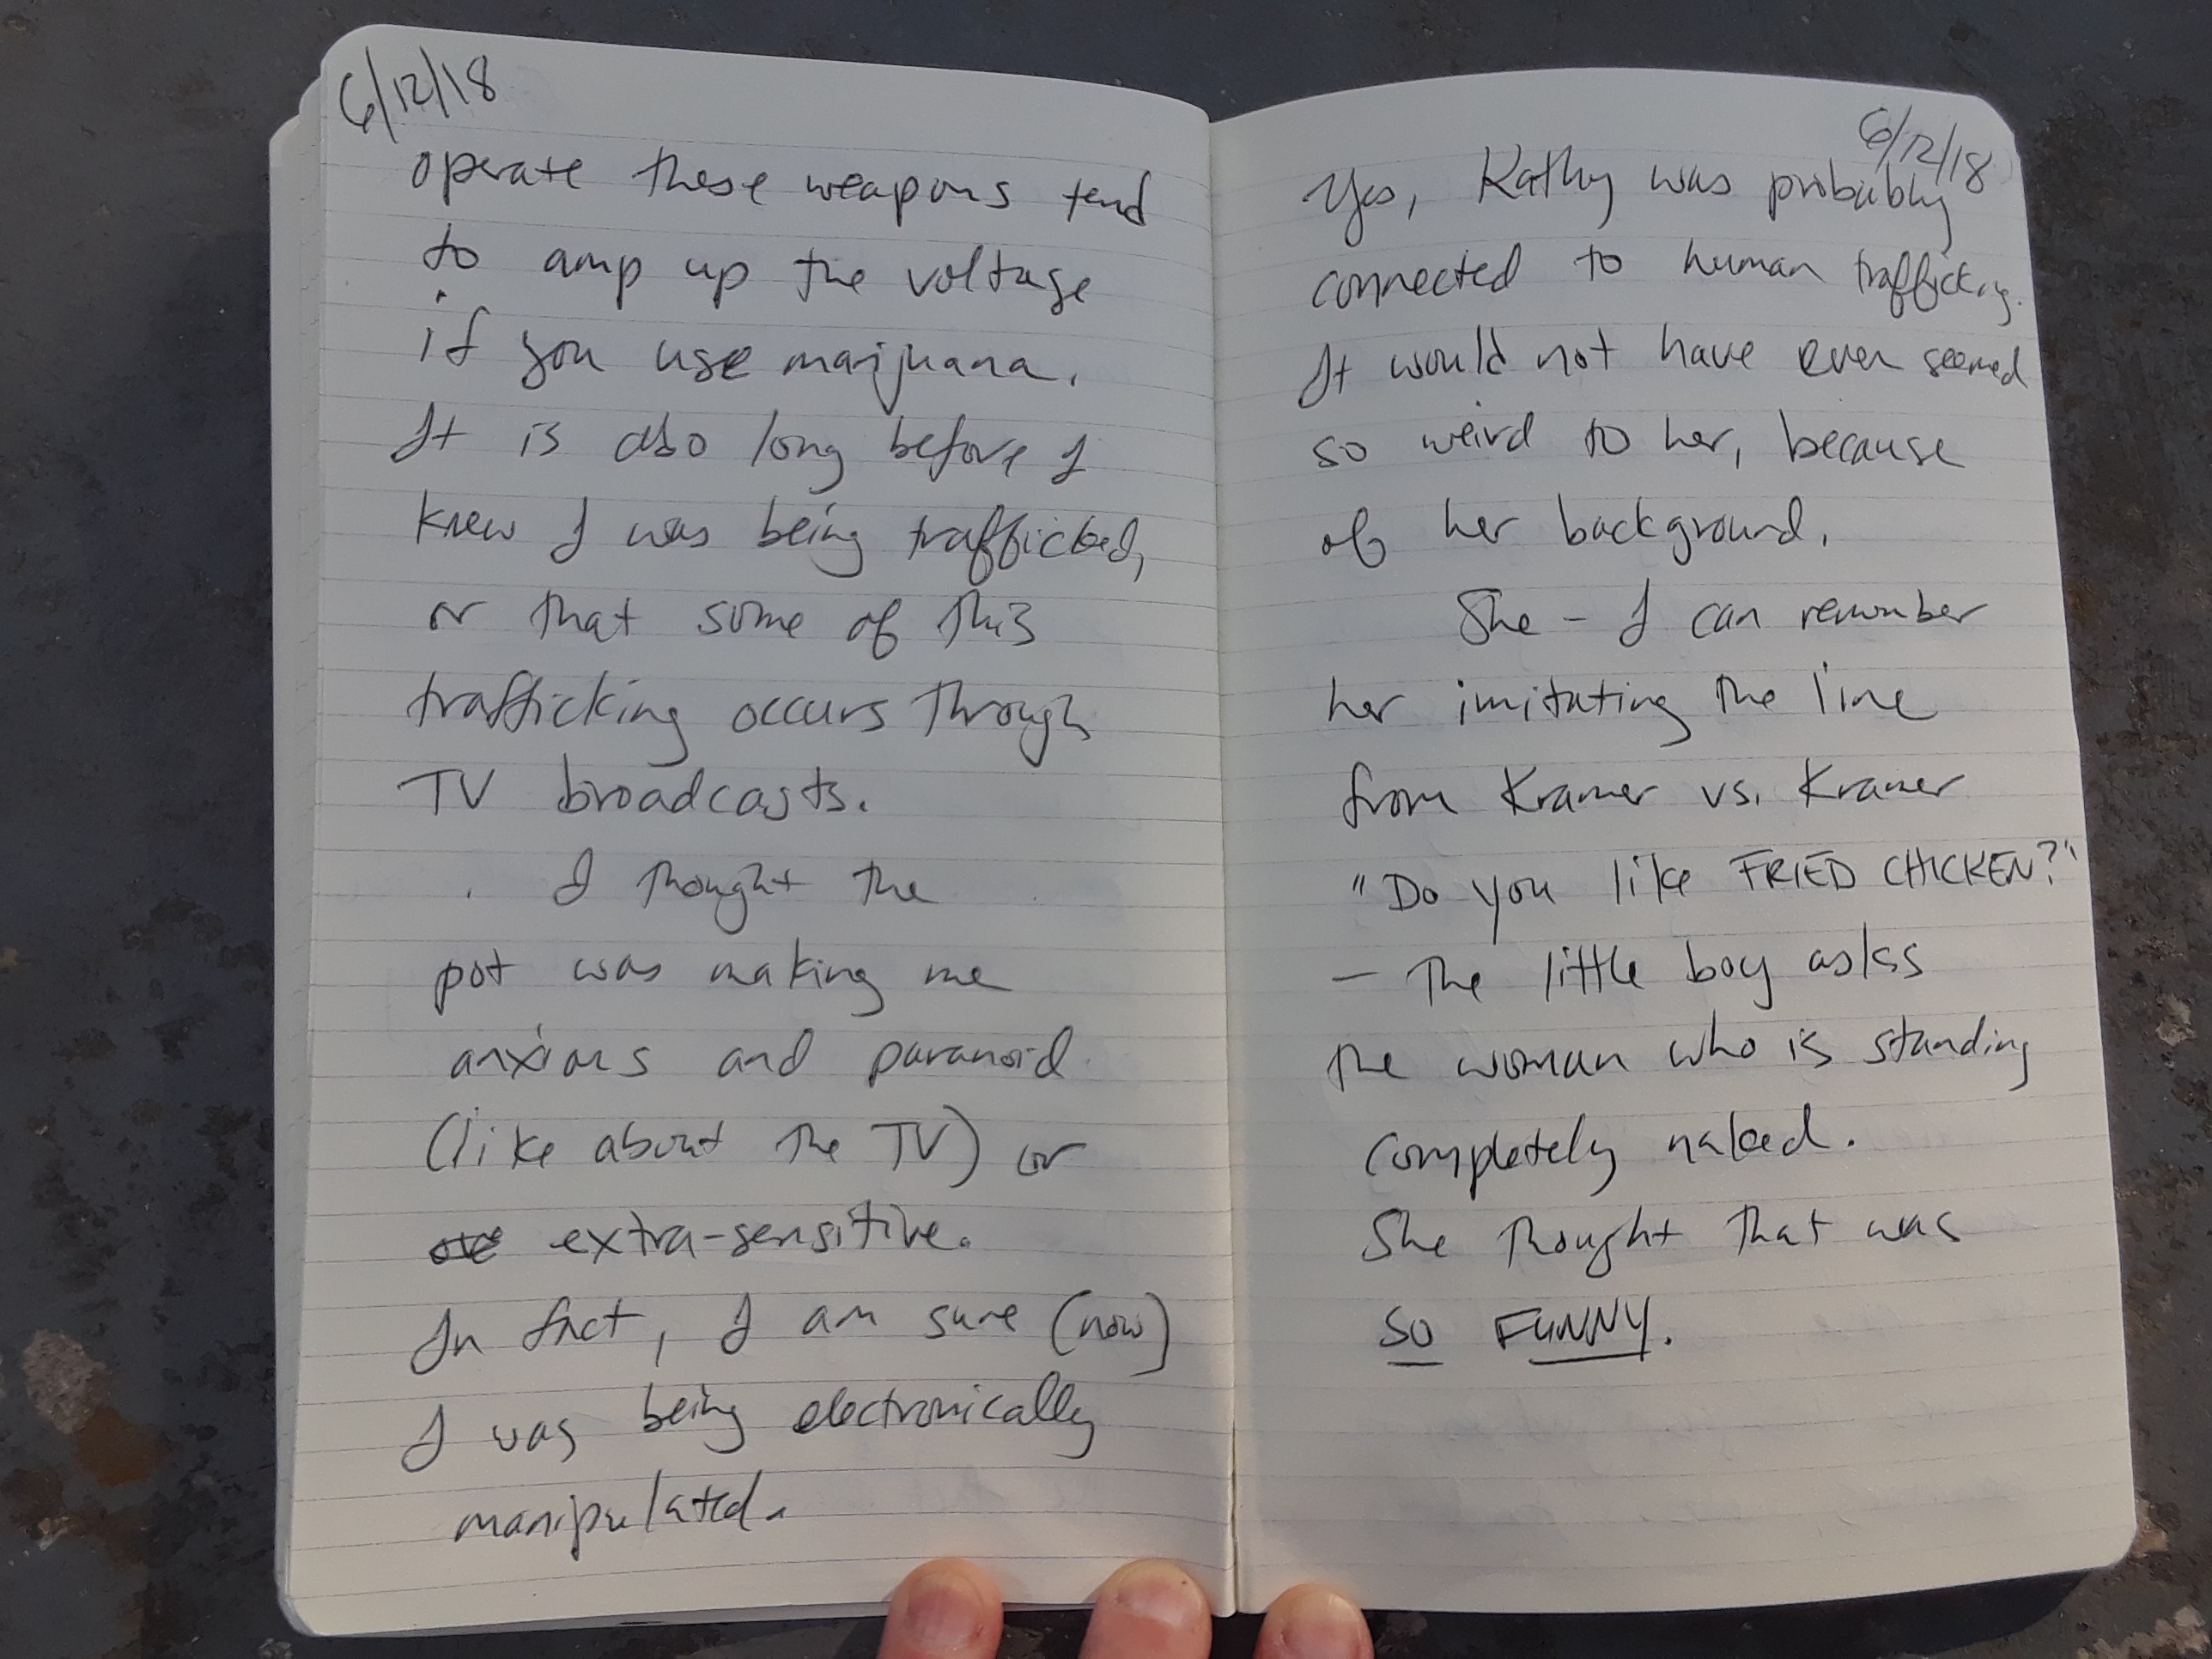 6/12/18
operate these weapons tend
to amp up the voltage
if you use marijuana.
It is also long before I
knew I was being trafficked,
or that some of this
trafficking occurs through
TV broadcasts.
I thought the
pot was making me
anxious and paranoid
(like about the TV) or
extra-sensitive.
In fact, I am sure (now)
I was being electronically
manipulated.
6/12/18
Yes, Kathy was probably
connected to human trafficking.
It would not have even seemed
so weird to her, because
of her background.
She - I can remember
her imitating the line
from Kramer vs. Kramer
"Do you like FRIED CHICKEN?"
- The little boy asks
the woman who is standing
completely naked.
She thought that was
SO FUNNY.